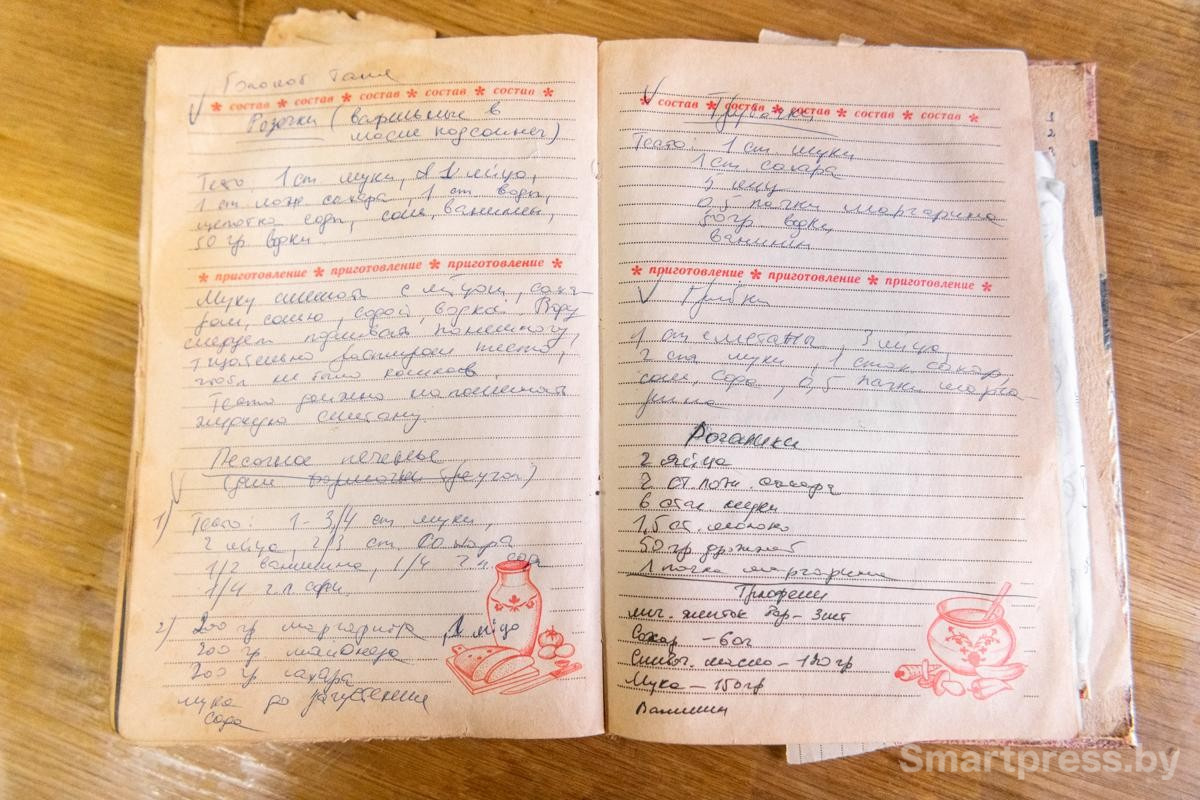 состав * состав * состав * состав * состав
Розочки (вафельные в
масле подсолнеч)
Тесто: 1 ст муки, 1 яйцо,
1 ст. лож сахара, 1 ст. воды,
щепотка соды, соли, ванилин,
50 гр водки
приготовление * приготовление * приготовление
Муку смешать с яйцом, саха-
ром, солью, содой, водка. Воду
следует подливать понемногу,
тщательно растирая тесто,
чтобы не было комков.
Тесто должно напоминать
жидкую сметану.
Песочное печенье
(для формочки
1) Тесто: 1-3/4 ст муки,
2 яйца, 2/3 ст. сахара
1/2 ванилина, 1/4 ч л
1/4 ч л соды.
2) 200 гр маргарина, 1 яйцо
200 гр майонеза
200 гр сахара
мука до загустения
сода
состав * состав * состав * состав * состав
Трубочки
Тесто: 1 ст муки
1 ст сахара
5 яиц
0,5 пачки маргарина
50 гр водки
ванилин
приготовление * приготовление * приготовление
Грибки
1 ст сметаны, 3 яйца,
2 ст муки, 1 стак сахар,
соли, сода, 0,5 пачки марга-
рина
Рогалики
2 яйца
2 ст ложк сахара
6 стак муки
1,5 ст. молоко
50 гр дрожжей
1 пачка маргарина
Трюфели
яич. желток - 3 шт
Сахар - 60 г
Сливоч. масло - гр
Мука - 150 гр
Ванилин
1
2
Smartpress.by